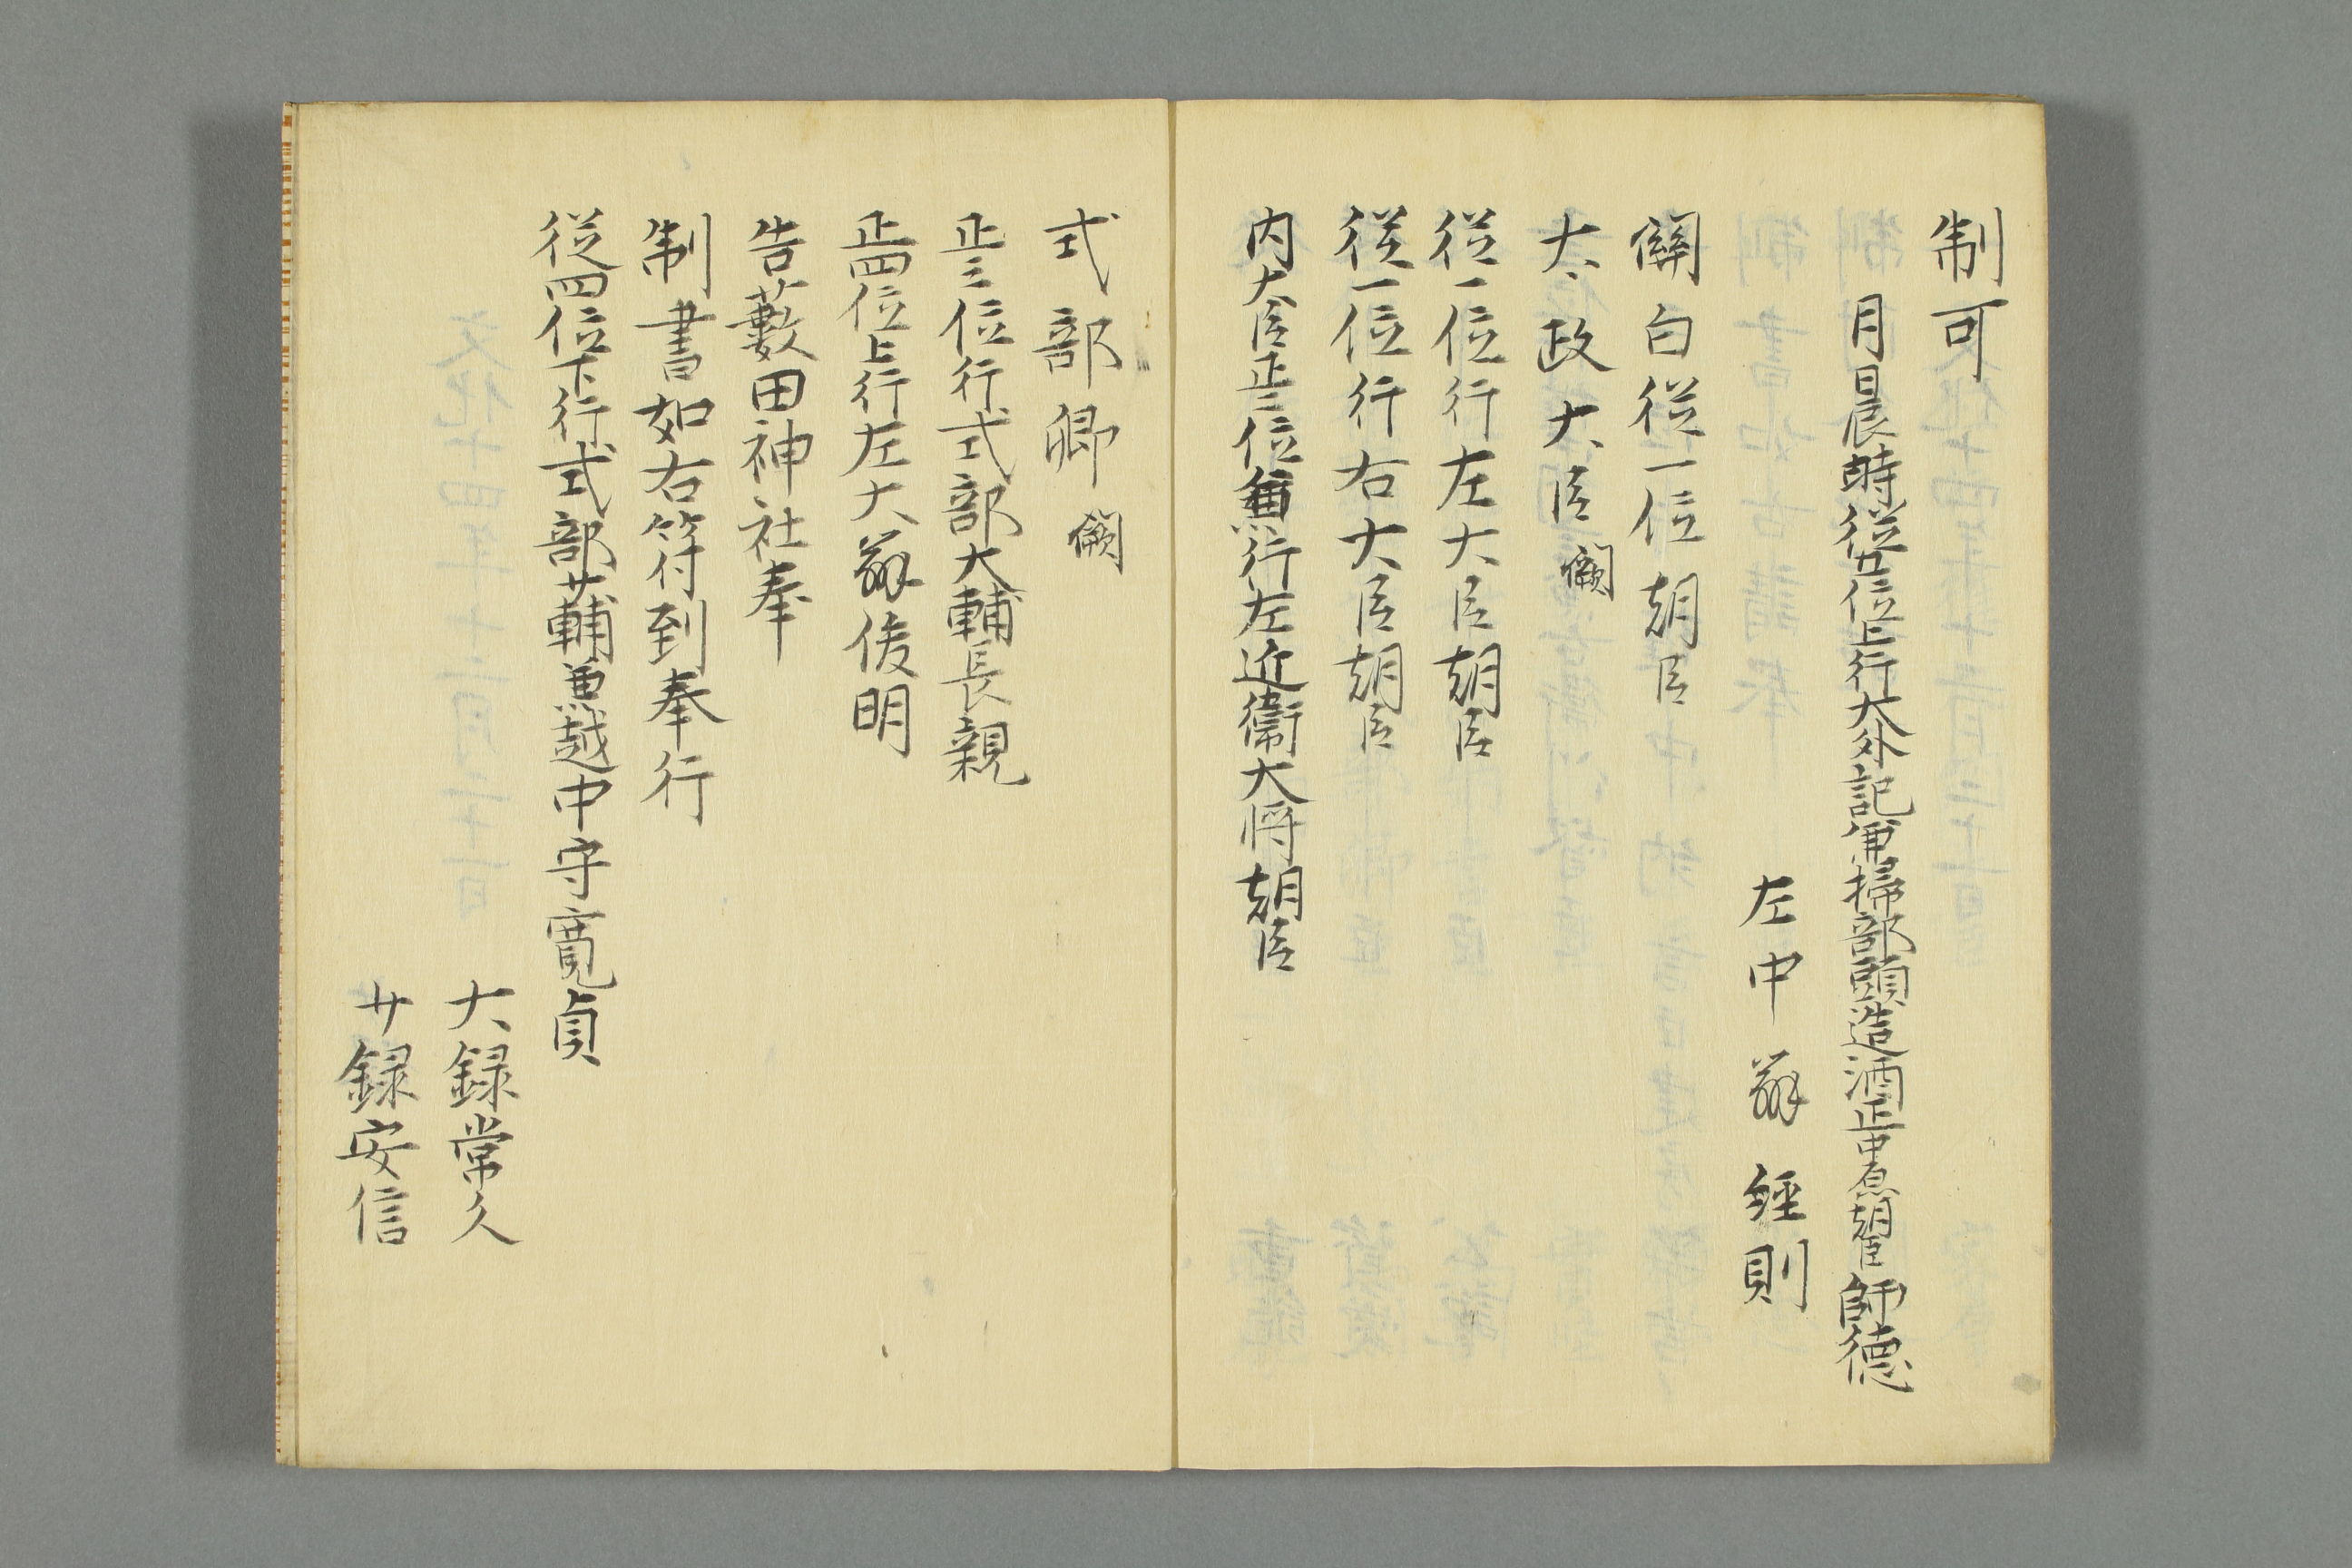 制可
月日辰時従五位上行大外記兼掃部頭造酒正中原朝臣師徳
左中辨経則
関白従一位朝臣
太政大臣闕
従一位行左大臣朝臣
従一位行右大臣朝臣
内大臣正二位兼行左近衛大将朝臣
式部卿闕
正三位行式部大輔長親
正四位上行左大辨俊明
告藪田神社奉
制書如右符到奉行
従四位下行式部少輔兼越中守寛貞
大録常久
少録安信